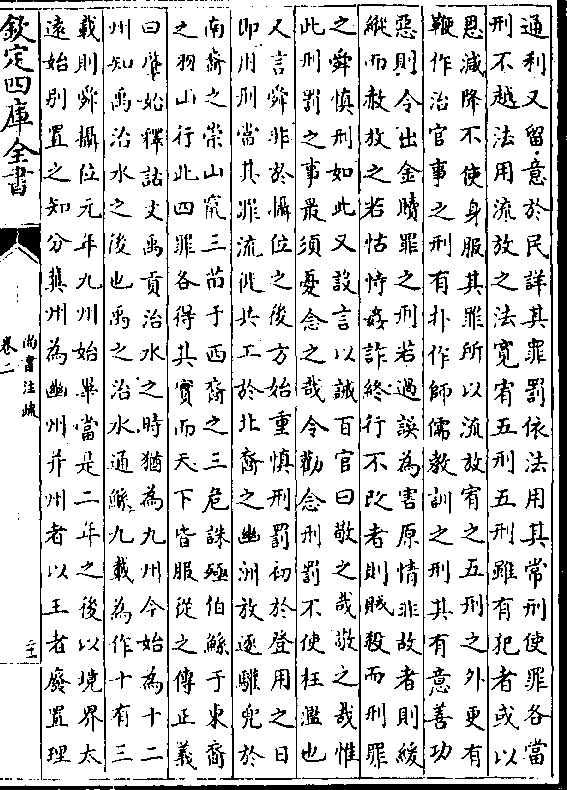 通利又留意於民詳其罪罰依法用其常刑使罪各當
刑不越法用流放之法寛宥五刑五刑雖有犯者或以
恩減降不使身服其罪所以流放宥之五刑之外更有
鞭作治官事之刑有扑作師儒教訓之刑其有意善功
惡則令出金贖罪之刑若過誤為害原情非故者則緩
縱而赦放之若怙恃姦詐終行不改者則賊殺而刑罪
之舜慎刑如此又設言以誡百官曰敬之哉敬之哉惟
此刑罰之事最須憂念之哉令勤念刑罰不使枉濫也
又言舜非於攝位之後方始重慎刑罰初於登用之日
即用刑當其罪流徙共工於北裔之幽洲放逐驩兜於
南裔之崇山竄三苗于西裔之三危誅殛伯鯀于東裔
之羽山行此四罪各得其實而天下皆服從之傳正義
曰肇始釋詁文禹貢治水之時猶為九州今始為十二
州知禹治水之後也禹之治水通鯀九載為作十有三
載則舜攝位元年九州始畢當是二年之後以境界太
遠始别置之知分冀州為幽州并州者以王者廢置理
欽定四庫全書
尚書注疏
卷二